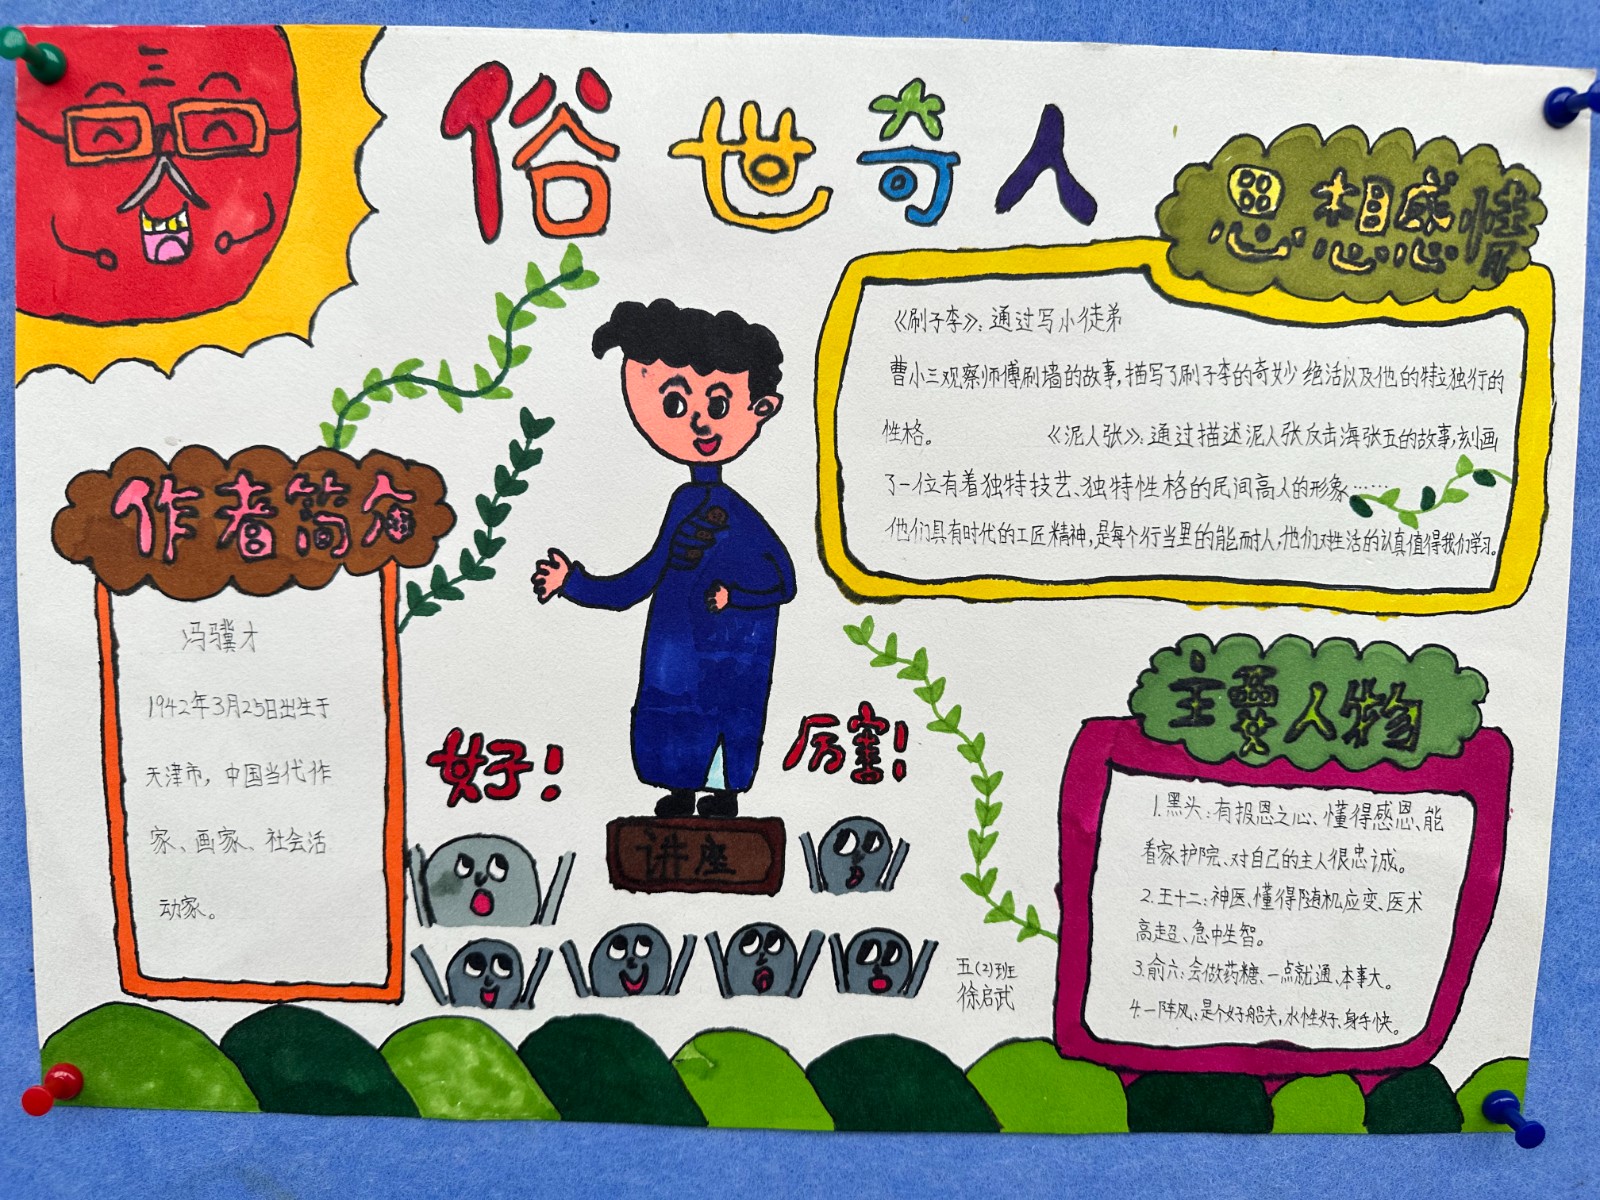 俗世奇人
思想感情
《刷子李》:通过写小徒弟
曹小三观察师傅刷墙的故事,描写了刷子李的奇妙绝活以及他的特立独行的
性格。 《泥人张》:通过描述泥人张反击海张五的故事,刻画
了一位有着独特技艺、独特性格的民间高人的形象……
他们具有时代的工匠精神,是每个行当里的能耐人,他们对生活的认真值得我们学习。
作者简介
冯骥才
1942年3月25日出生于
天津市,中国当代作
家、画家、社会活
动家。
好!
厉害!
讲座
主要人物
1.黑头:有报恩之心、懂得感恩、能
看家护院、对自己的主人很忠诚。
2.王十二:神医、懂得随机应变、医术
高超、急中生智。
3.俞六:会做药糖、一点就通、本事大。
4.一阵风:是个好船夫,水性好、身手快。
五(2)班
徐启武